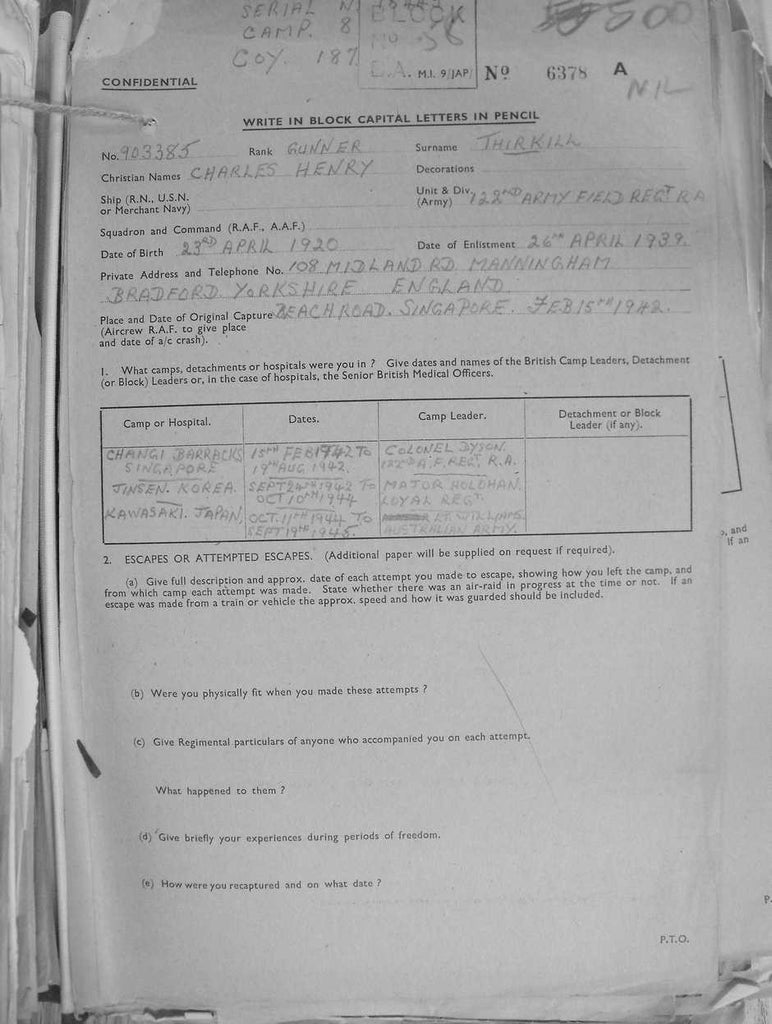 SERIAL
CAMP. 8
COY. 187
BLOCK
No 36
M.I. 9/JAP/ No 6378 A
NIL
CONFIDENTIAL
WRITE IN BLOCK CAPITAL LETTERS IN PENCIL
No. 903385 Rank GUNNER Surname THIRKILL
Christian Names CHARLES HENRY Decorations
Ship (R.N., U.S.N. or Merchant Navy) Unit & Div. (Army) 122ND ARMY FIELD REGT RA
Squadron and Command (R.A.F., A.A.F.)
Date of Birth 23RD APRIL 1920 Date of Enlistment 26TH APRIL 1939.
Private Address and Telephone No. 108 MIDLAND RD. MANNINGHAM
BRADFORD. YORKSHIRE ENGLAND.
Place and Date of Original Capture BEACH ROAD. SINGAPORE. FEB 15TH 1942.
(Aircrew R.A.F. to give place
and date of a/c crash).
1. What camps, detachments or hospitals were you in ? Give dates and names of the British Camp Leaders, Detachment
(or Block) Leaders or, in the case of hospitals, the Senior British Medical Officers.
Camp or Hospital. Dates. Camp Leader. Detachment or Block Leader (if any).
CHANGI BARRACKS 15TH FEB 1942 TO COLONEL DYSON.
SINGAPORE 19TH AUG 1942. 122ND A.F. REGT. R.A.
JINSEN. KOREA. SEPT 24TH 1942 TO MAJOR
OCT 10TH 1944 LOYAL REGT.
KAWASAKI. JAPAN. OCT. 11TH 1944 TO LT. WILLIAMS.
SEPT 19TH 1945. AUSTRALIAN ARMY.
2. ESCAPES OR ATTEMPTED ESCAPES. (Additional paper will be supplied on request if required).
(a) Give full description and approx. date of each attempt you made to escape, showing how you left the camp, and
from which camp each attempt was made. State whether there was an air-raid in progress at the time or not. If an
escape was made from a train or vehicle the approx. speed and how it was guarded should be included.
(b) Were you physically fit when you made these attempts ?
(c) Give Regimental particulars of anyone who accompanied you on each attempt.
What happened to them ?
(d) Give briefly your experiences during periods of freedom.
(e) How were you recaptured and on what date ?
P.T.O.
and
If an
P.